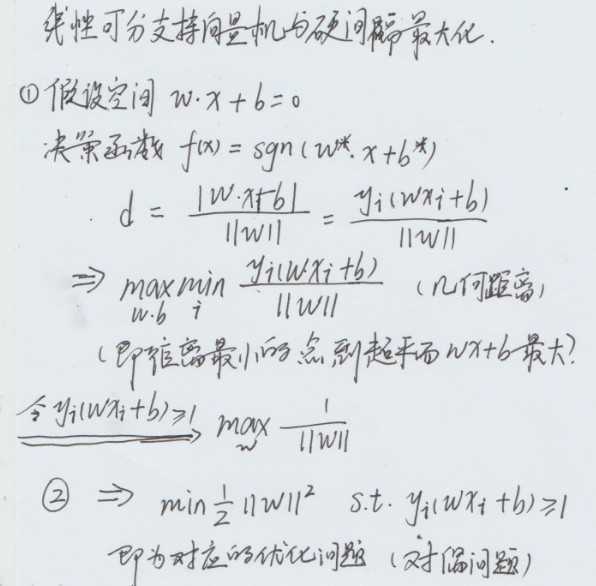 线性可分支持向量机与硬间隔最大化.
① 假设空间 w·x+b=0
决策函数 f(x) = sgn(w*·x+b*)
d = |w·x+b| / ||w|| = yi(wxi+b) / ||w||
⇒ max w·b min i yi(w·xi+b) / ||w|| (几何距离)
(即距离最小的点到超平面wx+b最大?
令yi(wxi+b)≥1 max w 1 / ||w||
② ⇒ min 1/2 ||w||² s.t. yi(wxi+b)≥1
即为对应的优化问题 (对偶问题)